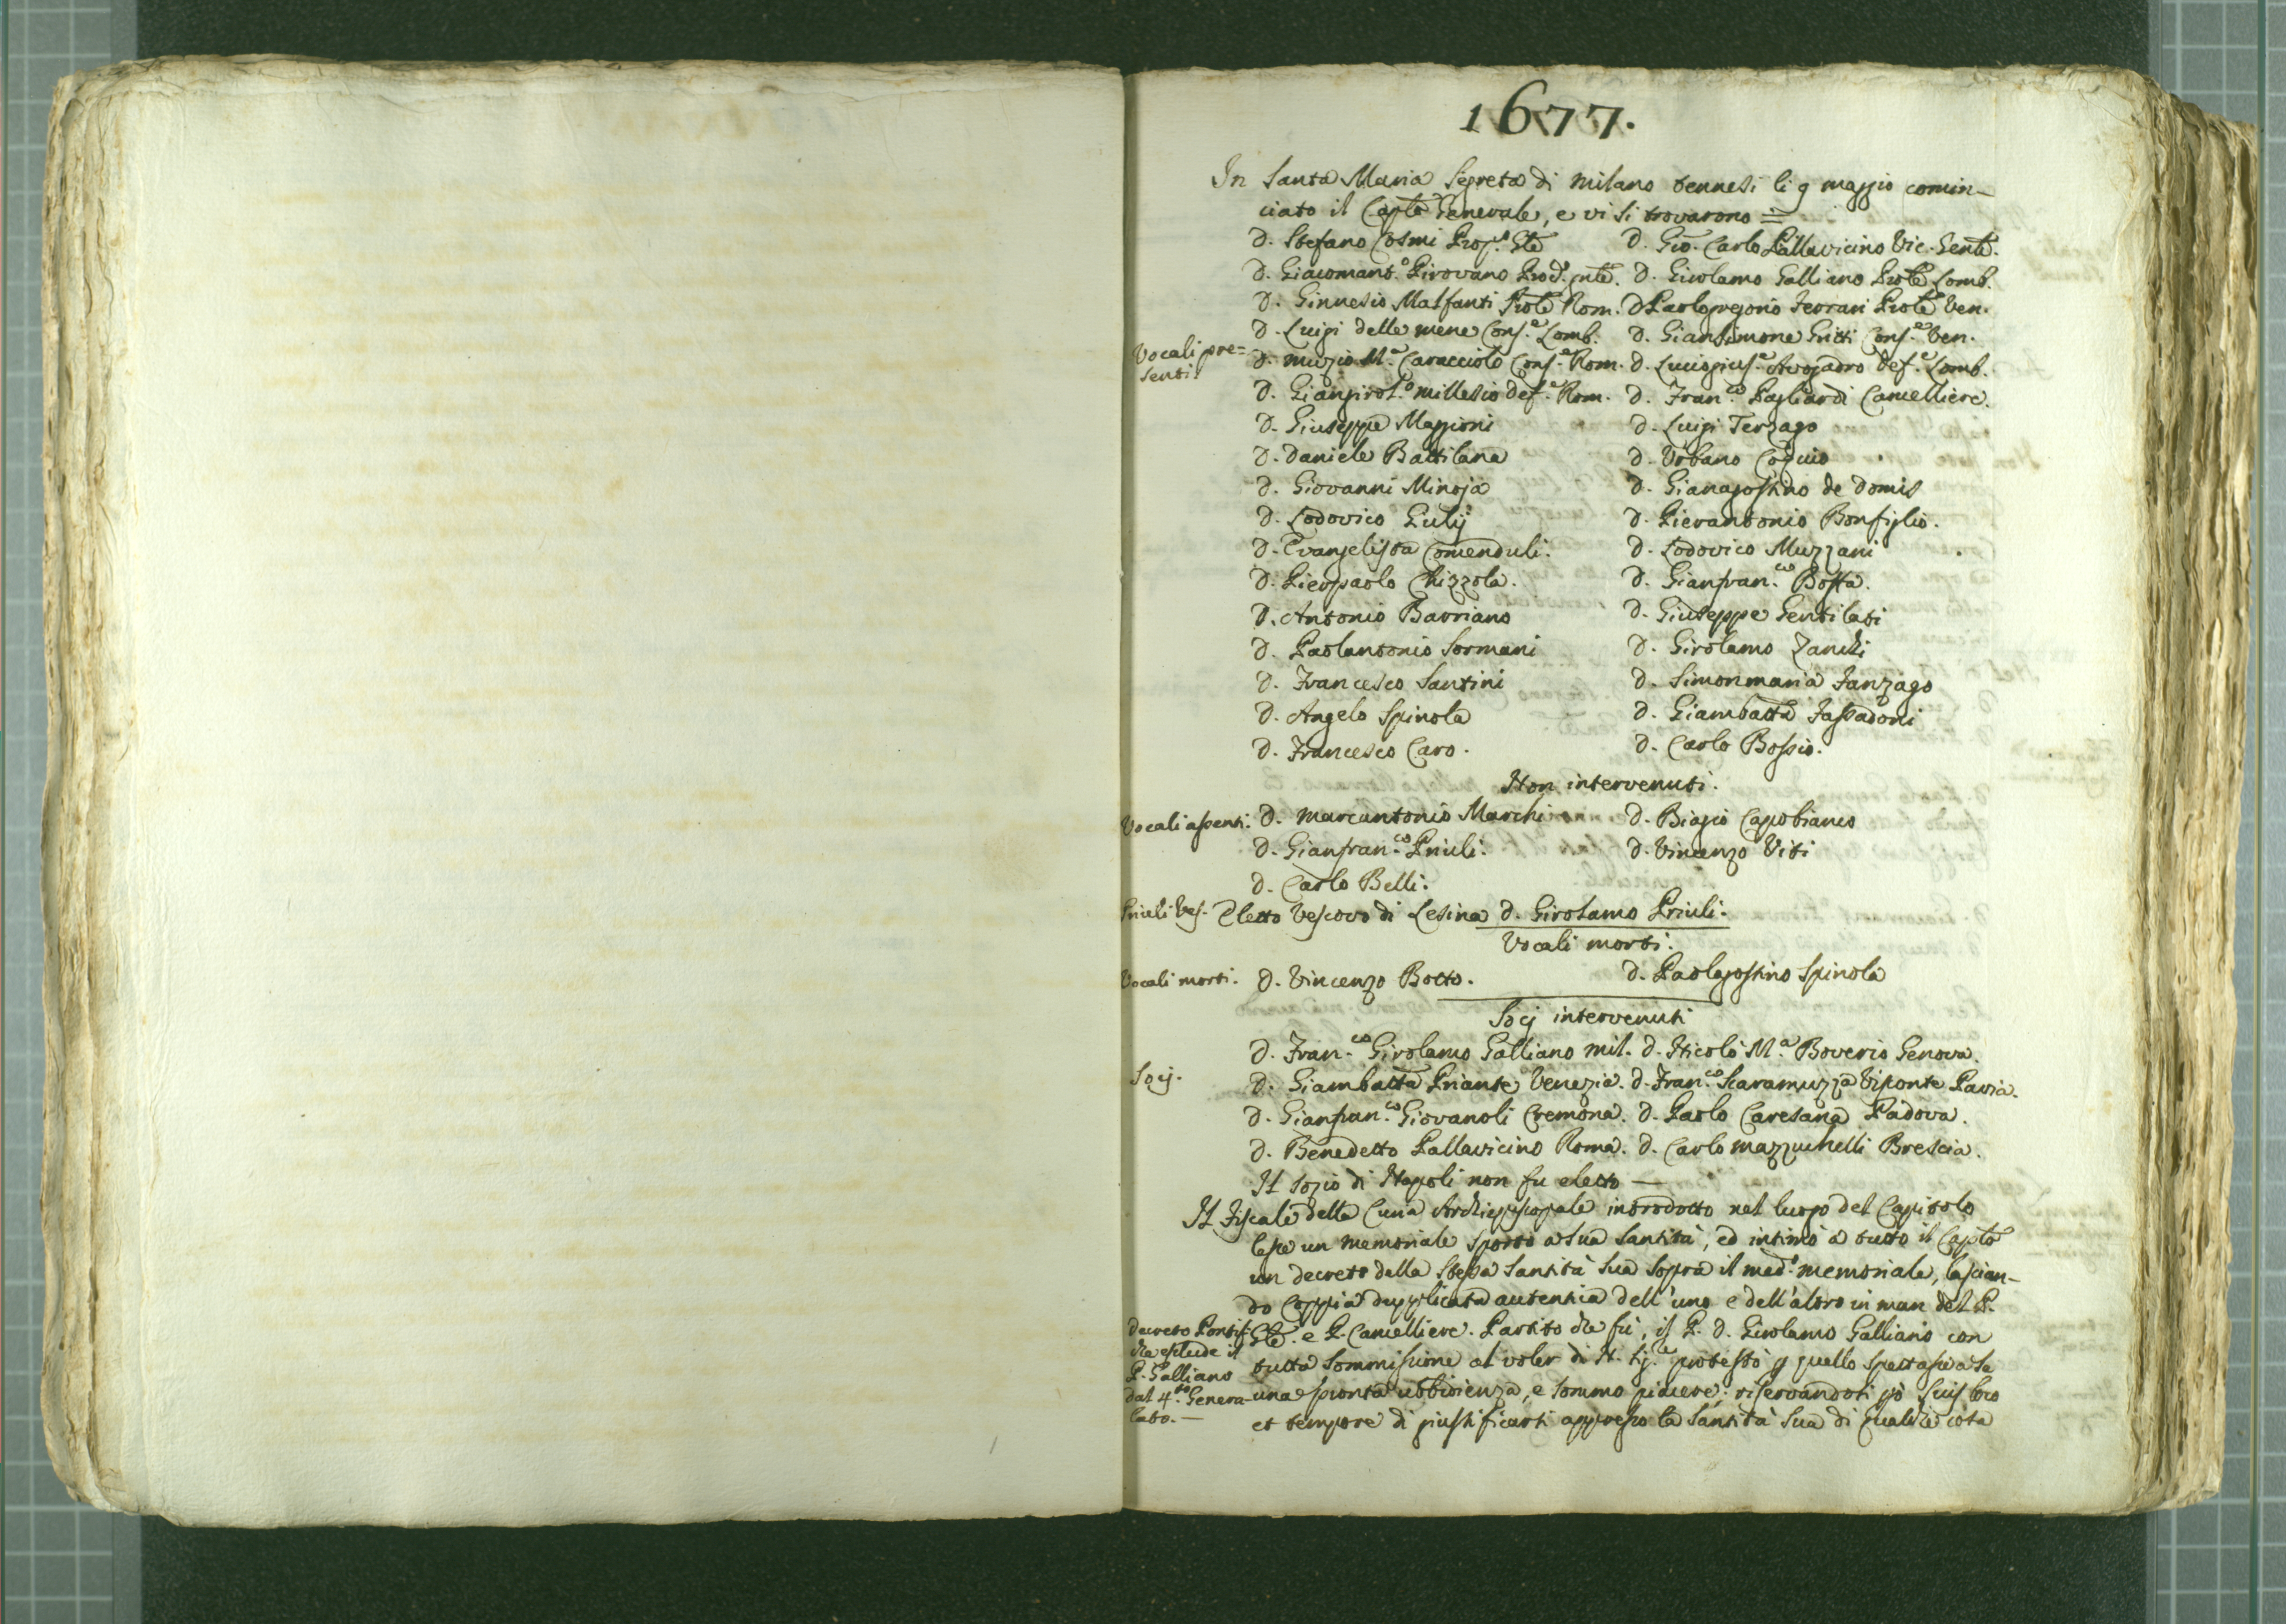 1677.
In Santa Maria Segreta di Milano tennesi li 9 maggio comin-
ciato il Caplo Generale, e vi si trovarono =
D. Stefano Cosmi Prop.to Gle D. Gio. Carlo Pallavicino Vic. Genle.
D. Giacomant.o Pirovano D. Girolamo Galliano Prole Lomb.
D. Ginnesio Malfanti Prole Rom. D. Paologregorio Ferrari Prole Ven.
D. Luigi delle mene Cons.e Lomb. D. Giansimone Gritti Cons.e Ven.
Vocali pre=
senti.
D. Muzio M.a Caracciolo Cons.e Rom. D. Avogadro Def.e Lomb.
D. Giangirol.o Millesio Def.e Rom. D. Fran.co Pagliardi Cancelliere.
D. Giuseppe Maggioni D. Luigi Terzago
D. Daniele Battilana D. Urbano Coquio
D. Giovanni Minoja D. Gianagostino de Domis
D. Lodovico Gulij D. Pierantonio Bonfiglio.
D. Evangelista Comenduli. D. Lodovico Muzzani
D. Pierpaolo Chizzola. D. Gianfran.co Bossa.
D. Antonio Barriano D. Giuseppe Gentilati
D. Paolantonio Sormani D. Girolamo Zanchi
D. Francesco Santini D. Simonmaria Fanzago
D. Angelo Spinola D. Giambatta Fassadoni
D. Francesco Caro. D. Carlo Bossio.
Non intervenuti.
Vocali assenti. D. Marcantonio Marchi D. Biagio Capobianco
D. Gianfran.co Priuli. D. Vincenzo Viti
D. Carlo Belli.
Priuli Ves. Eletto Vescovo di Lesina D. Girolamo Priuli.
Vocali morti.
Vocali morti. D. Vincenzo Botto. D. Paolagostino Spinola
Socj intervenuti
D. Fran.co Girolamo Galliano Mil. D. Nicolò M.a Boverio Genova.
Socj. D. Giambatta Priante Venezia. D. Fran.co Scaramuzza Visconte Pavia.
D. Gianfran.co Giovanoli Cremona. D. Paolo Caresana Padova.
D. Benedetto Pallavicino Roma. D. Carlo Mazzuchelli Brescia.
Il sozio di Napoli non fu eletto —
Il Fiscale della Curia Archiepiscopale introdotto nel luogo del Capitolo
lesse un memoriale sporto a sua Santità, ed intimò a tutto il Caplo
un decreto della stessa Santità sua sopra il med.o memoriale, lascian-
do coppia dupplicata autentica dell'uno e dell'altro in man del P.
Decreto Pontif.
che esclude il
P. Galliano
dal 4.to Genera-
lato. —
Gle. e P. Cancelliere. Partito che fù, il P. D. Girolamo Galliano con
tutta sommissione al voler di N. Sig.re protestò p quello spettasse a se
una pronta ubbidienza, e sommo piacere: riservandosi pò suis loco
et tempore di giustificarsi appresso la Santità sua di qualche cosa